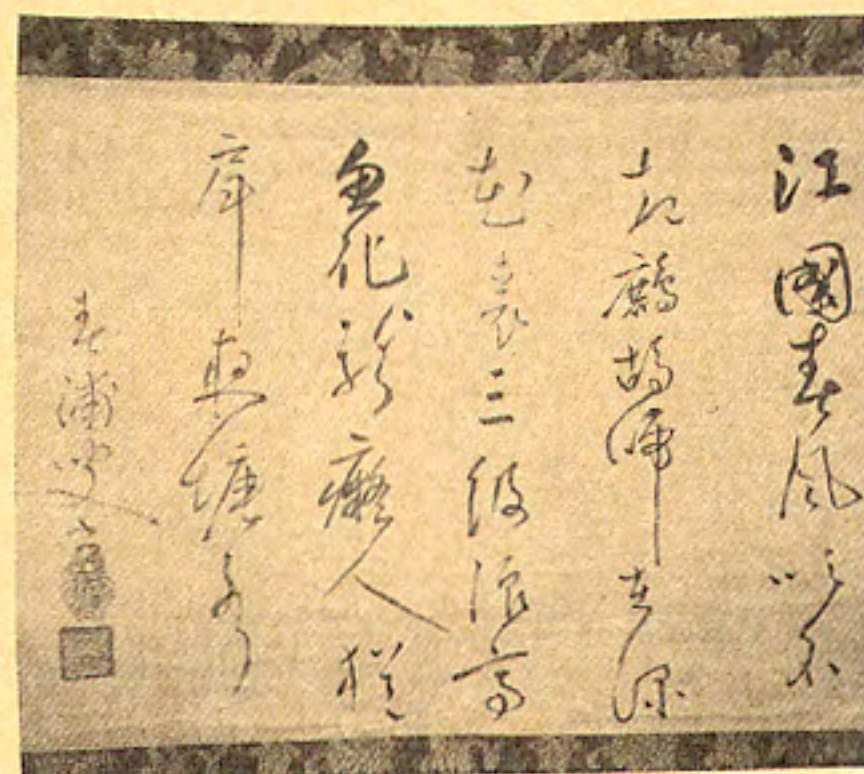 江國春風吹不
起鷓鴣啼在深
花裏三級浪高
魚化龍癡人猶
戽夜塘水
春浦叟